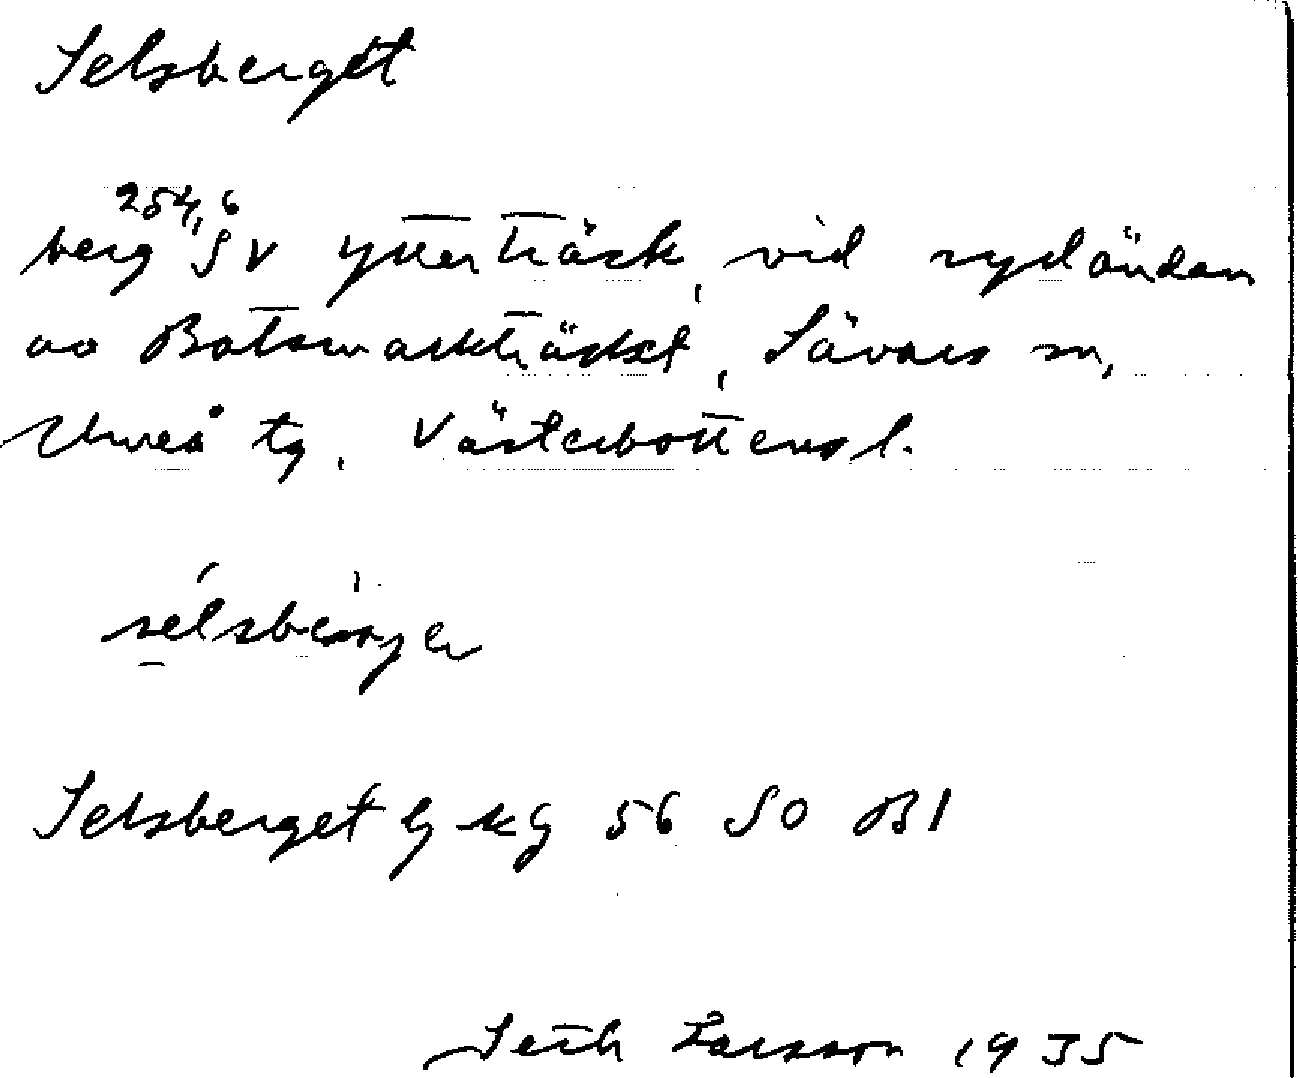 Selsberget
254,6
berg SV Ytterträsk, vid sydändan
av Botsmarkträsket, Sävars sn,
Umeå tg, Västerbottens l.
Selsberget
56 SO B1
Seth Larsson 1935